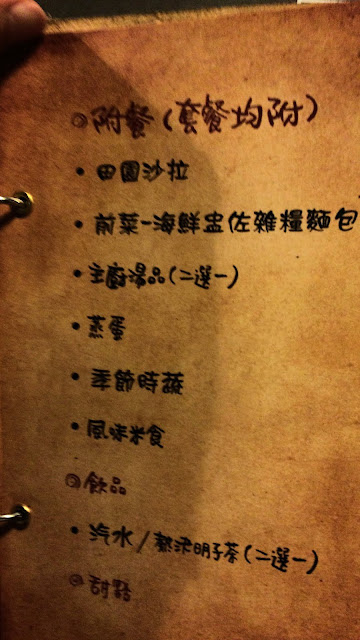 ◎附餐(套餐均附)
•田園沙拉
•前菜-海鮮盅佐雜糧麵包
•主廚湯品(二選一)
•蒸蛋
•季節時蔬
•風味米食
◎飲品
•汽水/熱決明子茶(二選一)
◎甜點